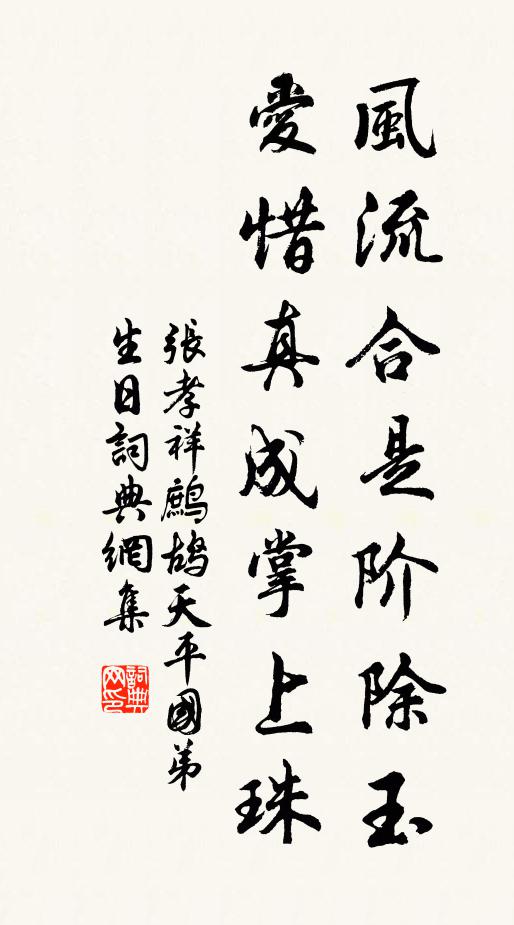 風流合是阶除玉
愛惜真成掌上珠
張孝祥鷓鴣天平國弟
生日詞典網集
詞典網印